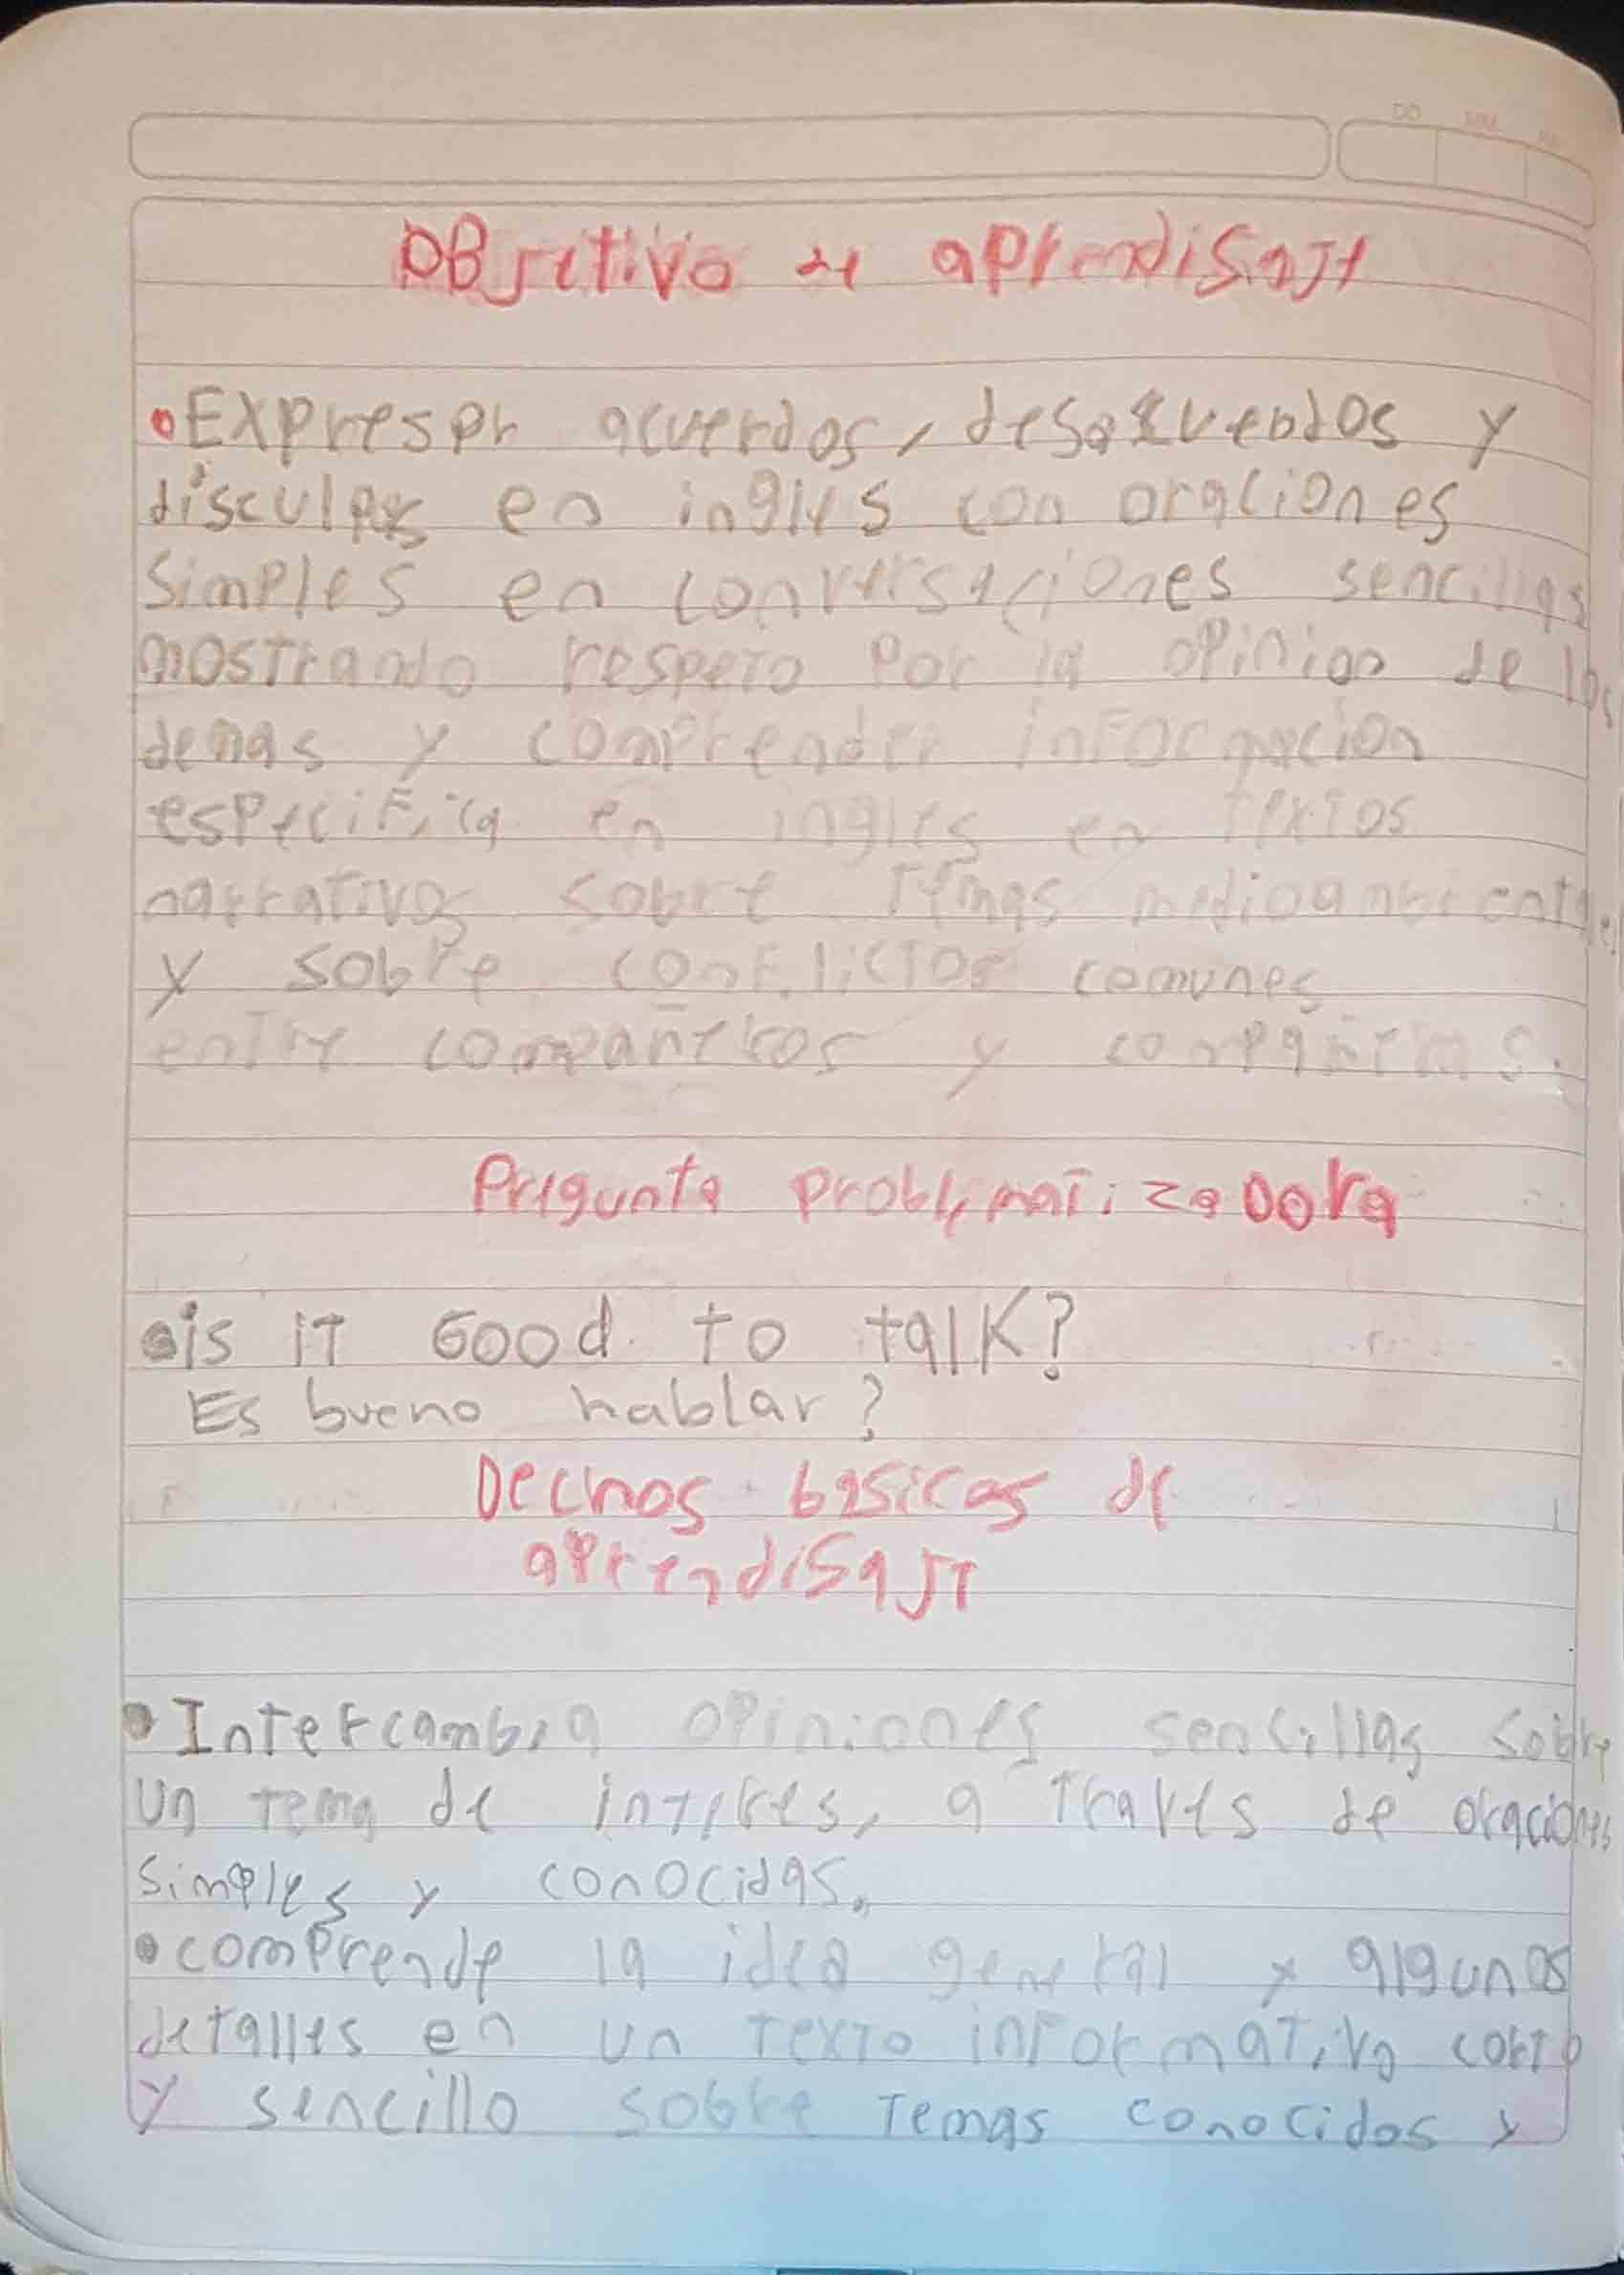 OBjetivo de aprendisaje
•Expresar acuerdos, desacuerdos y
disculpas en ingles con oraciones
simples en conversaciones sencillas
mostrando respeto por la opinion de los
demas y comprender informacion
especifica en ingles en textos
narrativos sobre temas medioambientales
y sobre conflictos comunes
entre compañeros y compañeras.
Pregunta problematizadora
•is it Good to talk?
Es bueno hablar?
Dechos basicos de
aprendisaje
•Intercambia opiniones sencillas sobre
un tema de interes, a traves de oraciones
simples y conocidas.
•comprende la idea general y algunos
detalles en un texto informativo corto
y sencillo sobre temas conocidos y